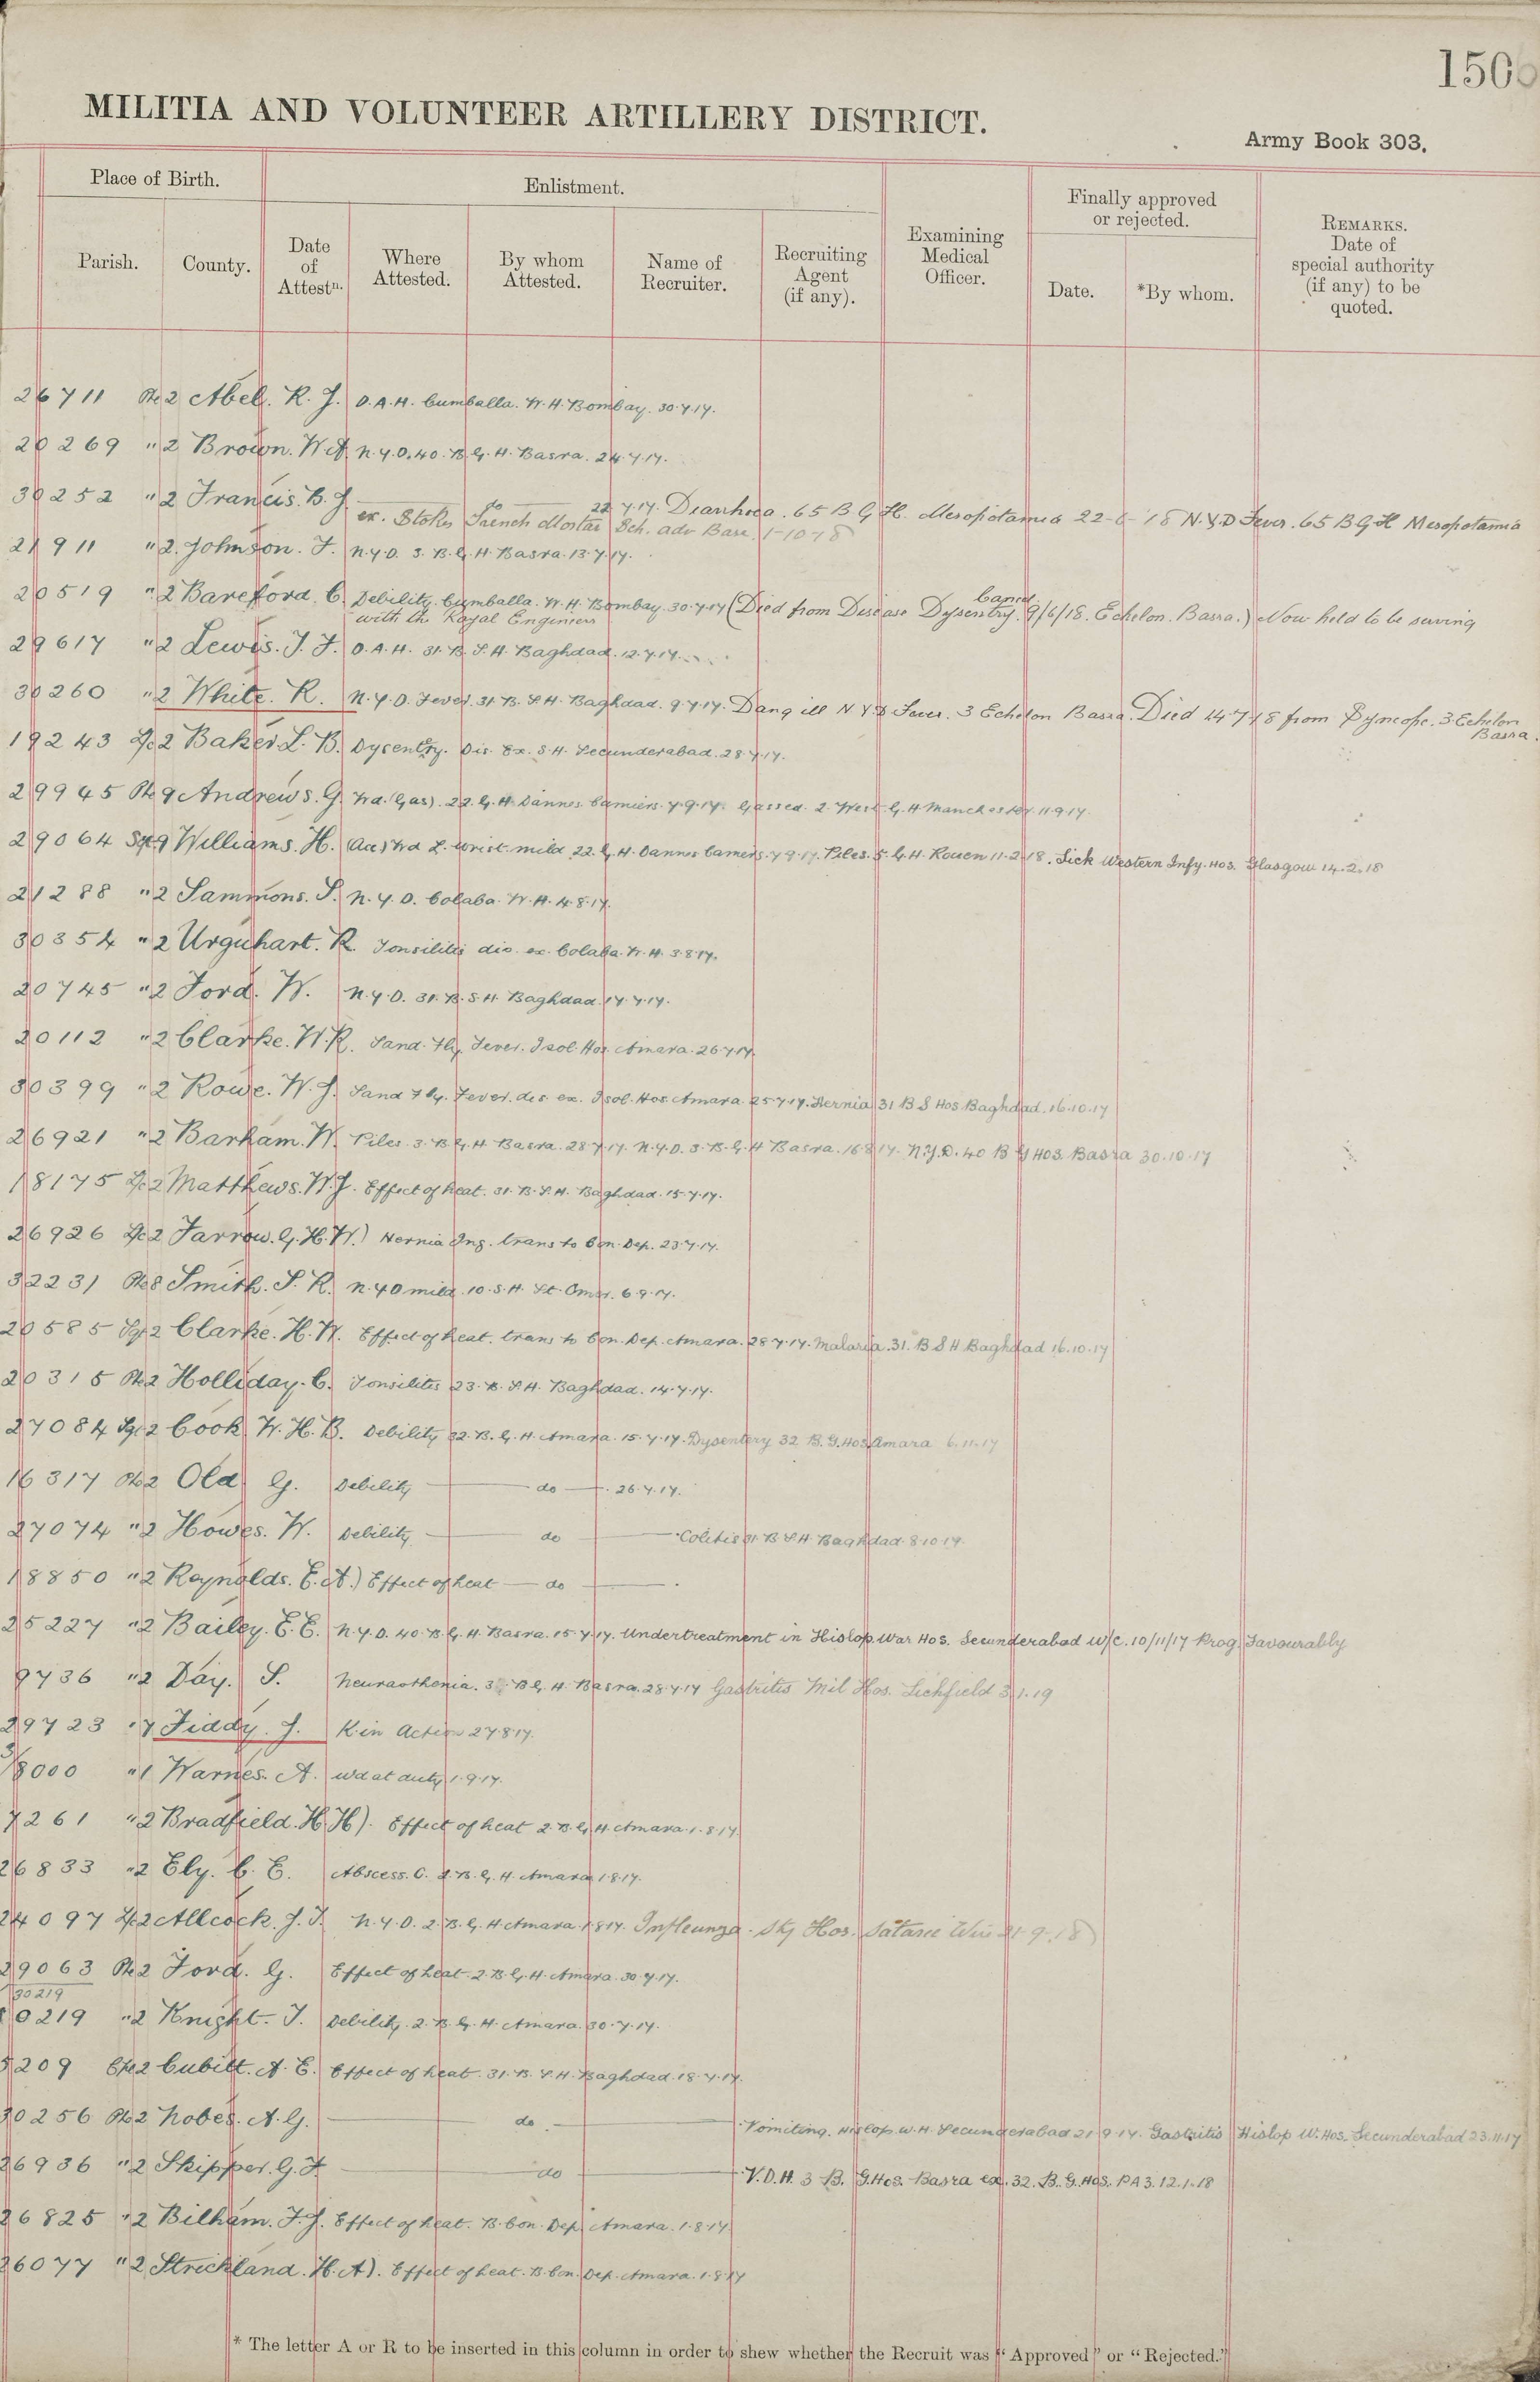 150
MILITIA AND VOLUNTEER ARTILLERY DISTRICT.
Army Book 303.
Place of Birth.
Enlistment.
Finally approved or rejected.
Parish.
County.
Date of Attestn.
Where Attested.
By whom Attested.
Name of Recruiter.
Recruiting Agent (if any).
Examining Medical Officer.
Date.
*By whom.
REMARKS. Date of special authority (if any) to be quoted.
26711 Pte 2 Abel. R. J. D.A.H. Cumballa. W.H. Bombay. 30.7.17.
20269 " 2 Brown. W.A. N.Y.D. 40. B.G.H. Basra. 24.7.17.
30252 " 2 Francis. B. J. do 22.7.17. Diarrhoea. 65 B G H. Mesopotamia 22-6-18 N.Y.D Fever. 65 B G H Mesopotamia
ex. Stokes Trench Mortar Sch. adv Base. 1-10-18
21911 " 2. Johnson. F. N.Y.D. 3. B.G.H. Basra. 13.7.17.
20519 " 2 Bareford. C. Debility. Cumballa. W.H. Bombay. 30.7.17 (Died from Disease Dysentry. 9/6/18. Echelon. Basra.) Now held to be serving
Cancd.
with the Royal Engineers
29617 " 2 Lewis. J. F. D.A.H. 31. B.S.H. Baghdad. 12.7.17.
30260 " 2 White. R. N.Y.D. Fever. 31. B.S.H. Baghdad. 9.7.17. Dang ill N Y D Fever. 3 Echelon Basra. Died 14.7.18 from Syncope. 3 Echelon
Basra.
19243 L/c 2 Baker L. B. Dysentry. Dis. Ex. S.H. Secunderabad. 28.7.17.
29945 Pte 9 Andrews. G. Wd. (Gas). 22. G.H. Dannes Camiers. 7.9.17. Gassed. 2. West. G.H. Manchester. 11.9.17.
29064 Sgt 9 Williams. H. (Acc) Wd L. wrist. mild 22. G.H. Dannes Camiers. 7.9.17. Piles. 5. G.H. Rouen 11.2.18. Sick Western Infy. Hos. Glasgow 14.2.18
21288 " 2 Sammons. S. N.Y.D. Colaba. W.H. 4.8.17.
30354 " 2 Urquhart. R. Tonsilitis dis. ex. Colaba. W.H. 3.8.17.
20745 " 2 Ford. W. N.Y.D. 31. B.S.H. Baghdad. 17.7.17.
20112 " 2 Clarke. W.R. Sand. Fly. Fever. Isol. Hos. Amara. 26.7.17.
30399 " 2 Rowe. W. J. Sand Fly. Fever. dis. ex. Isol. Hos. Amara. 25.7.17. Hernia 31 B S Hos Baghdad. 16.10.17
26921 " 2 Barham. W. Piles. 3. B.G.H. Basra. 28.7.17. N.Y.D. 3. B.G.H Basra. 16.8.17. N.Y.D. 40 B G Hos. Basra 30.10.17
18175 L/c 2 Matthews. W. J. Effect of heat. 31. B.S.H. Baghdad. 15.7.17.
26926 L/c 2 Farrow. G. H. W.) Hernia Ing. trans to Con. Dep. 23.7.17.
32231 Pte 8 Smith. S. R. N.Y.D mild. 10. S.H. St. Omer. 6.9.17.
20585 Sgt 2 Clarke. H. W. Effect of heat. trans to Con. Dep. Amara. 28.7.17. Malaria. 31. B S H Baghdad 16.10.17
20315 Pte 2 Holliday. C. Tonsilitis 23. B.S.H. Baghdad. 14.7.17.
27084 Sgt 2 Cook W. H. B. Debility 32. B.G.H. Amara. 15.7.17. Dysentery 32 B.G. Hos Amara 6.11.17
16317 Pte 2 Old G. Debility do 26.7.17.
27074 " 2 Howes. W. Debility do Colitis 31. B.S.H Baghdad. 8.10.17.
18850 " 2 Reynolds. E. A.) Effect of heat do
25227 " 2 Bailey. E. E. N.Y.D. 40. B.G.H. Basra. 15.7.17. Undertreatment in Hislop War Hos. Secunderabad w/e. 10/11/17 Prog. Favourably
9736 " 2 Day. S. Neurasthenia. 3. B.G.H. Basra. 28.7.17 Gastritis Mil Hos. Lichfield 3.1.19
29723 " 7 Fiddy. J. K. in Action 27.8.17.
3/8000 " 1 Warnes. A. wd at duty 1.9.17.
7261 " 2 Bradfield. H. H). Effect of heat 2. B.G.H. Amara. 1.8.17.
26833 " 2 Ely. C. E. Abscess. C. 2. B.G.H. Amara 1.8.17.
24097 L/c 2 Allcock. J. T. N.Y.D. 2. B.G.H. Amara. 1.8.17. Infleunza - Stj Hos. 21.9.18)
29063 Pte 2 Ford. G. Effect of heat. 2. B.G.H. Amara. 30.7.17.
30219
0219 " 2 Knight. T. Debility. 2. B.G.H. Amara. 30.7.17.
5209 Cpl 2 Cubitt. A. E. Effect of heat. 31. B.S.H. Baghdad. 18.7.17.
30256 Pte 2 Nobes. A. G. do Vomiting. Hislop. W.H. Secunderabad 21.9.17. Gastritis Hislop W. Hos. Secunderabad 23.11.17
26936 " 2 Skipper. G. F do V.D.H. 3 B. G. Hos. Basra ex. 32. B.G. Hos. PA 3. 12.1.18
26825 " 2 Bilham. F. J. Effect of heat. B. Con. Dep. Amara. 1.8.17
26077 " 2 Strickland. H. A). Effect of heat. B. Con. Dep. Amara. 1.8.17
* The letter A or R to be inserted in this column in order to shew whether the Recruit was "Approved" or "Rejected."